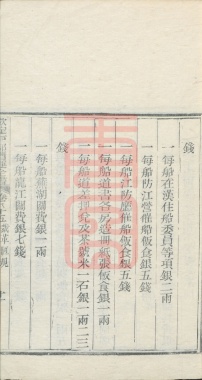 錢
一每船在漢住船委員等項銀二兩
一每船防江營催船飯食銀五錢
一每船江防廳催船飯食銀五錢
一每船道書各房造冊紙張飯食銀一兩
一每船道 兌及茶 米一石銀一兩二三
錢
一每船蕪湖關費銀一兩
一每船龍江關費銀七錢